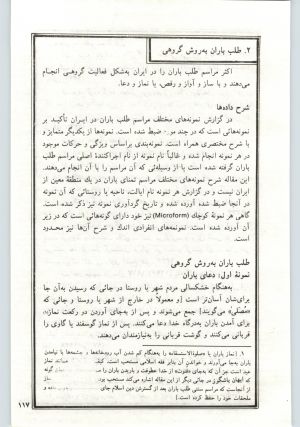 ۲. طلب باران به‌روش گروهی
اکثر مراسم طلب باران را در ایران به‌شکل فعالیت گروهی انجام
می‌دهند و با ساز و آواز و رقص، یا نماز و دعا.
شرح داده‌ها
در گزارش نمونه‌های مختلف مراسم طلب باران در ایران تأکید بر
نمونه‌هائی است که در چند مورد ضبط شده است. نمونه‌ها از یکدیگر متمایز و
با شرح مختصری همراه است. نمونه‌بندی براساس ویژگی و حرکات موجود
در هر نمونه انجام شده و غالباً نام نمونه از نام اجراکنندهٔ اصلی مراسم طلب
باران گرفته شده است یا از وسیله‌ئی که آن مراسم را با آن انجام می‌دهند.
این مقاله شرح نمونه‌های مختلف مراسم تمنای باران در یك منطقهٔ معین از
ایران نیست و در گزارش هر نمونه نام ایالت، ناحیه یا روستائی که آن نمونه
در آنجا ضبط شده آورده شده و تاریخ گردآوری نمونه نیز ذکر شده است.
گاهی هر نمونهٔ کوچك (Microform) نیز خود دارای گونه‌هائی است که در زیر
آن آورده شده است. نمونه‌های انفرادی اندك و شرح آن‌ها نیز محدود
است.
طلب باران به‌روش گروهی
نمونهٔ اول: دعای باران
به‌هنگام خشکسالی مردم شهر یا روستا در جائی که رسیدن به‌آن جا
برای‌شان آسان‌تر است [و معمولاً در خارج از شهر یا روستا و جائی که
«مُصَلّی» می‌گویند] جمع می‌شوند و پس از به‌جای آوردن دو رکعت نماز۱،
برای آمدن باران به‌درگاه خدا دعا می‌کنند. پس از نماز گوسفند یا گاوی را
قربانی می‌کنند و گوشت قربانی را به‌نیازمندان می‌دهند.
۱. [نماز باران یا «صلوةالاستسقاء» را به‌هنگام کم شدن آب رودخانه‌ها و چشمه‌ها یا نیامدن
باران به‌جای می‌آورند. و خواندن آن بنابر فقه اسلامی مستحب است. کیفیت
عید است جز آن که به‌جای «قنوت» از خدا حفاوت و باریدن باران را می
که آن‌چنان باشکوچ در جائی دیگر از این مقاله اشاره می‌کند مستحب
از آنجاست که مراسم سنتی طلب باران بعد از گسترش دین اسلام جای
ملحقات خود را حفظ کرده است.]
۱۱۷